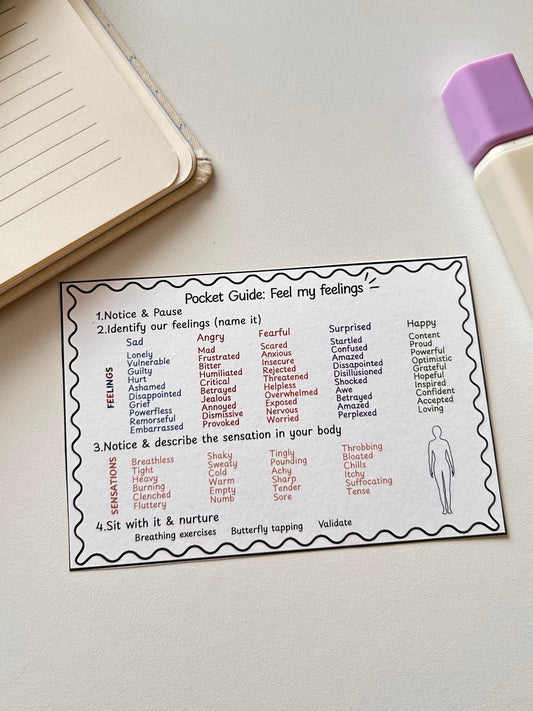 Pocket Guide: Feel my feelings
1.Notice & Pause
2.Identify our feelings (name it)
FEELINGS
Sad
Lonely
Vulnerable
Guilty
Hurt
Ashamed
Disappointed
Grief
Powerless
Remorseful
Embarrassed
Angry
Mad
Frustrated
Bitter
Humiliated
Critical
Betrayed
Jealous
Annoyed
Dismissive
Provoked
Fearful
Scared
Anxious
Insecure
Rejected
Threatened
Helpless
Overwhelmed
Exposed
Nervous
Worried
Surprised
Startled
Confused
Amazed
Dissapointed
Disillusioned
Shocked
Awe
Betrayed
Amazed
Perplexed
Happy
Content
Proud
Powerful
Optimistic
Grateful
Hopeful
Inspired
Confident
Accepted
Loving
3.Notice & describe the sensation in your body
SENSATIONS
Breathless
Tight
Heavy
Burning
Clenched
Fluttery
Shaky
Sweaty
Cold
Warm
Empty
Numb
Tingly
Pounding
Achy
Sharp
Tender
Sore
Throbbing
Bloated
Chills
Itchy
Suffocating
Tense
4.Sit with it & nurture
Breathing exercises Butterfly tapping Validate